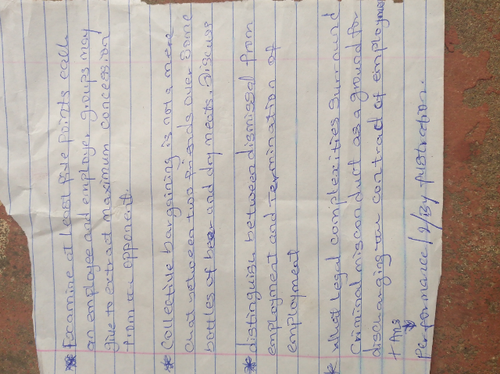 * Examine at least five points each
an employee and employer groups may
give to extract maximum concession
from an opponent.
* Collective bargaining is not a mere
chat between two friends over some
bottles of beer and dry meats. Discuss
* distinguish between dismissal from
employment and termination of
employment
* what legal complexities surround
criminal misconduct as a ground for
discharging a contract of employment
+ Ans
Performance / 2/By frustration.